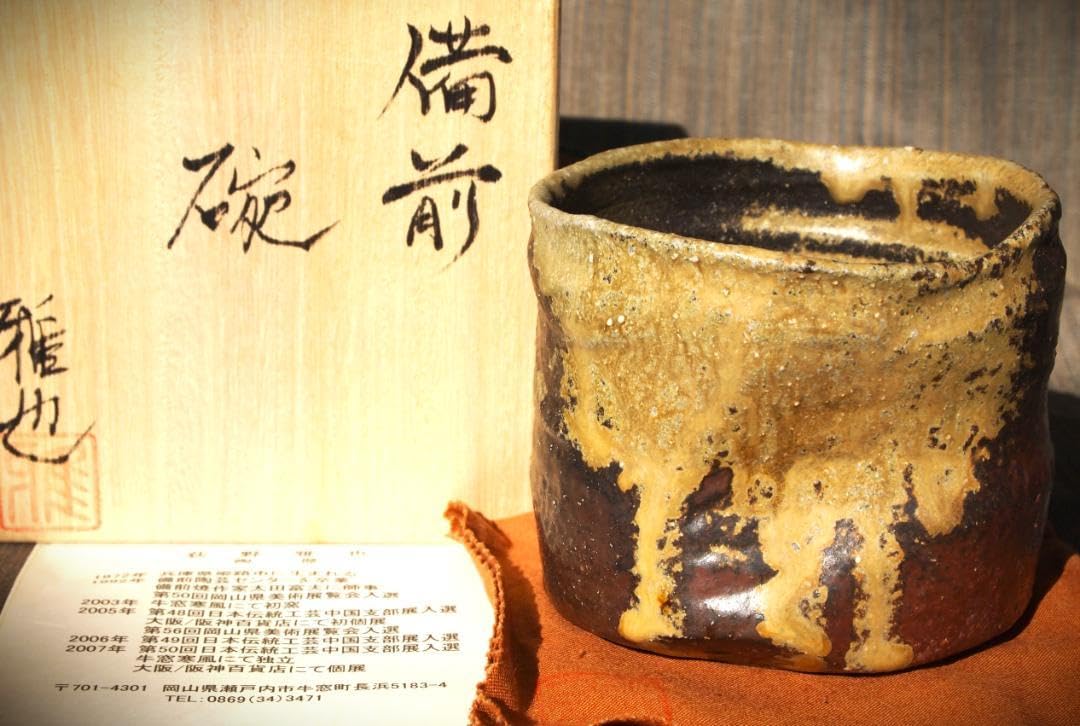 備前
碗
雅也
荻野雅也
陶歴
1972年 兵庫県姫路市に生まれる
1992年 備前陶芸センターを卒業
備前焼作家太田富夫に師事
第50回岡山県美術展覧会入選
2003年 牛窓寒風にて初窯
2005年 第48回日本伝統工芸中国支部展入選
大阪/阪神百貨店にて初個展
第56回岡山県美術展覧会入選
2006年 第49回日本伝統工芸中国支部展入選
2007年 第50回日本伝統工芸中国支部展入選
牛窓寒風にて独立
大阪/阪神百貨店にて個展
〒701-4301 岡山県瀬戸内市牛窓町長浜5183-4
TEL:0869(34)3471